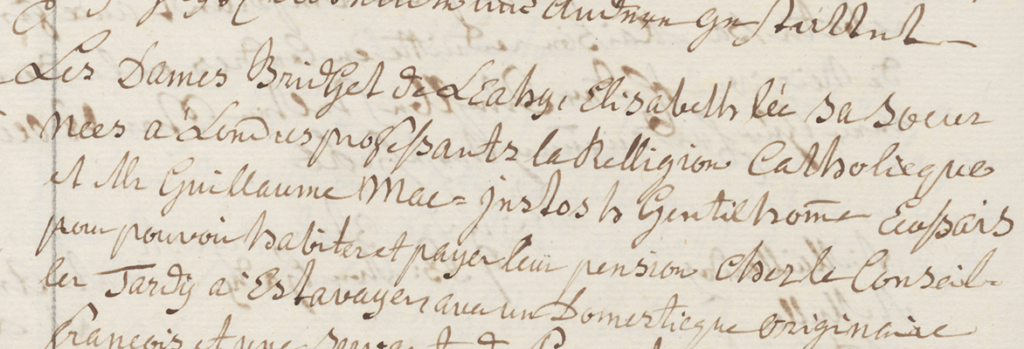 Les Dames Bridget de LEahy, Elisabeth lée sa soeur
nées a Londres professants la Relligion Catholicque
et Mr Guillaume Mac=Jnstosh Gentilhom̄e Ecossais
pour pouvoir habiter et payer leur pension chez le Conseil-
ler Tardy a Estavayer, avec un Domesticque originaire
francois et une